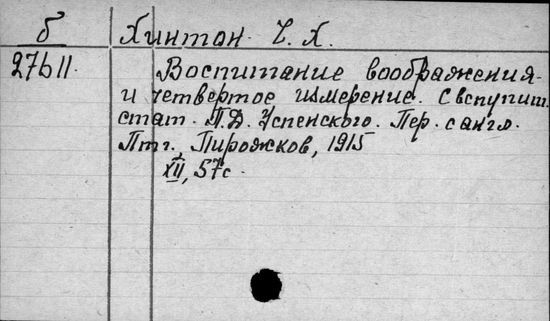 б Хинтон Ч. Х.
27611. Воспитание воображения
и четвертое измерение. С вступит.
стат. П.Д. Успенского. Пер. с англ.
Птг. Пирожков, 1915
XII, 57с.